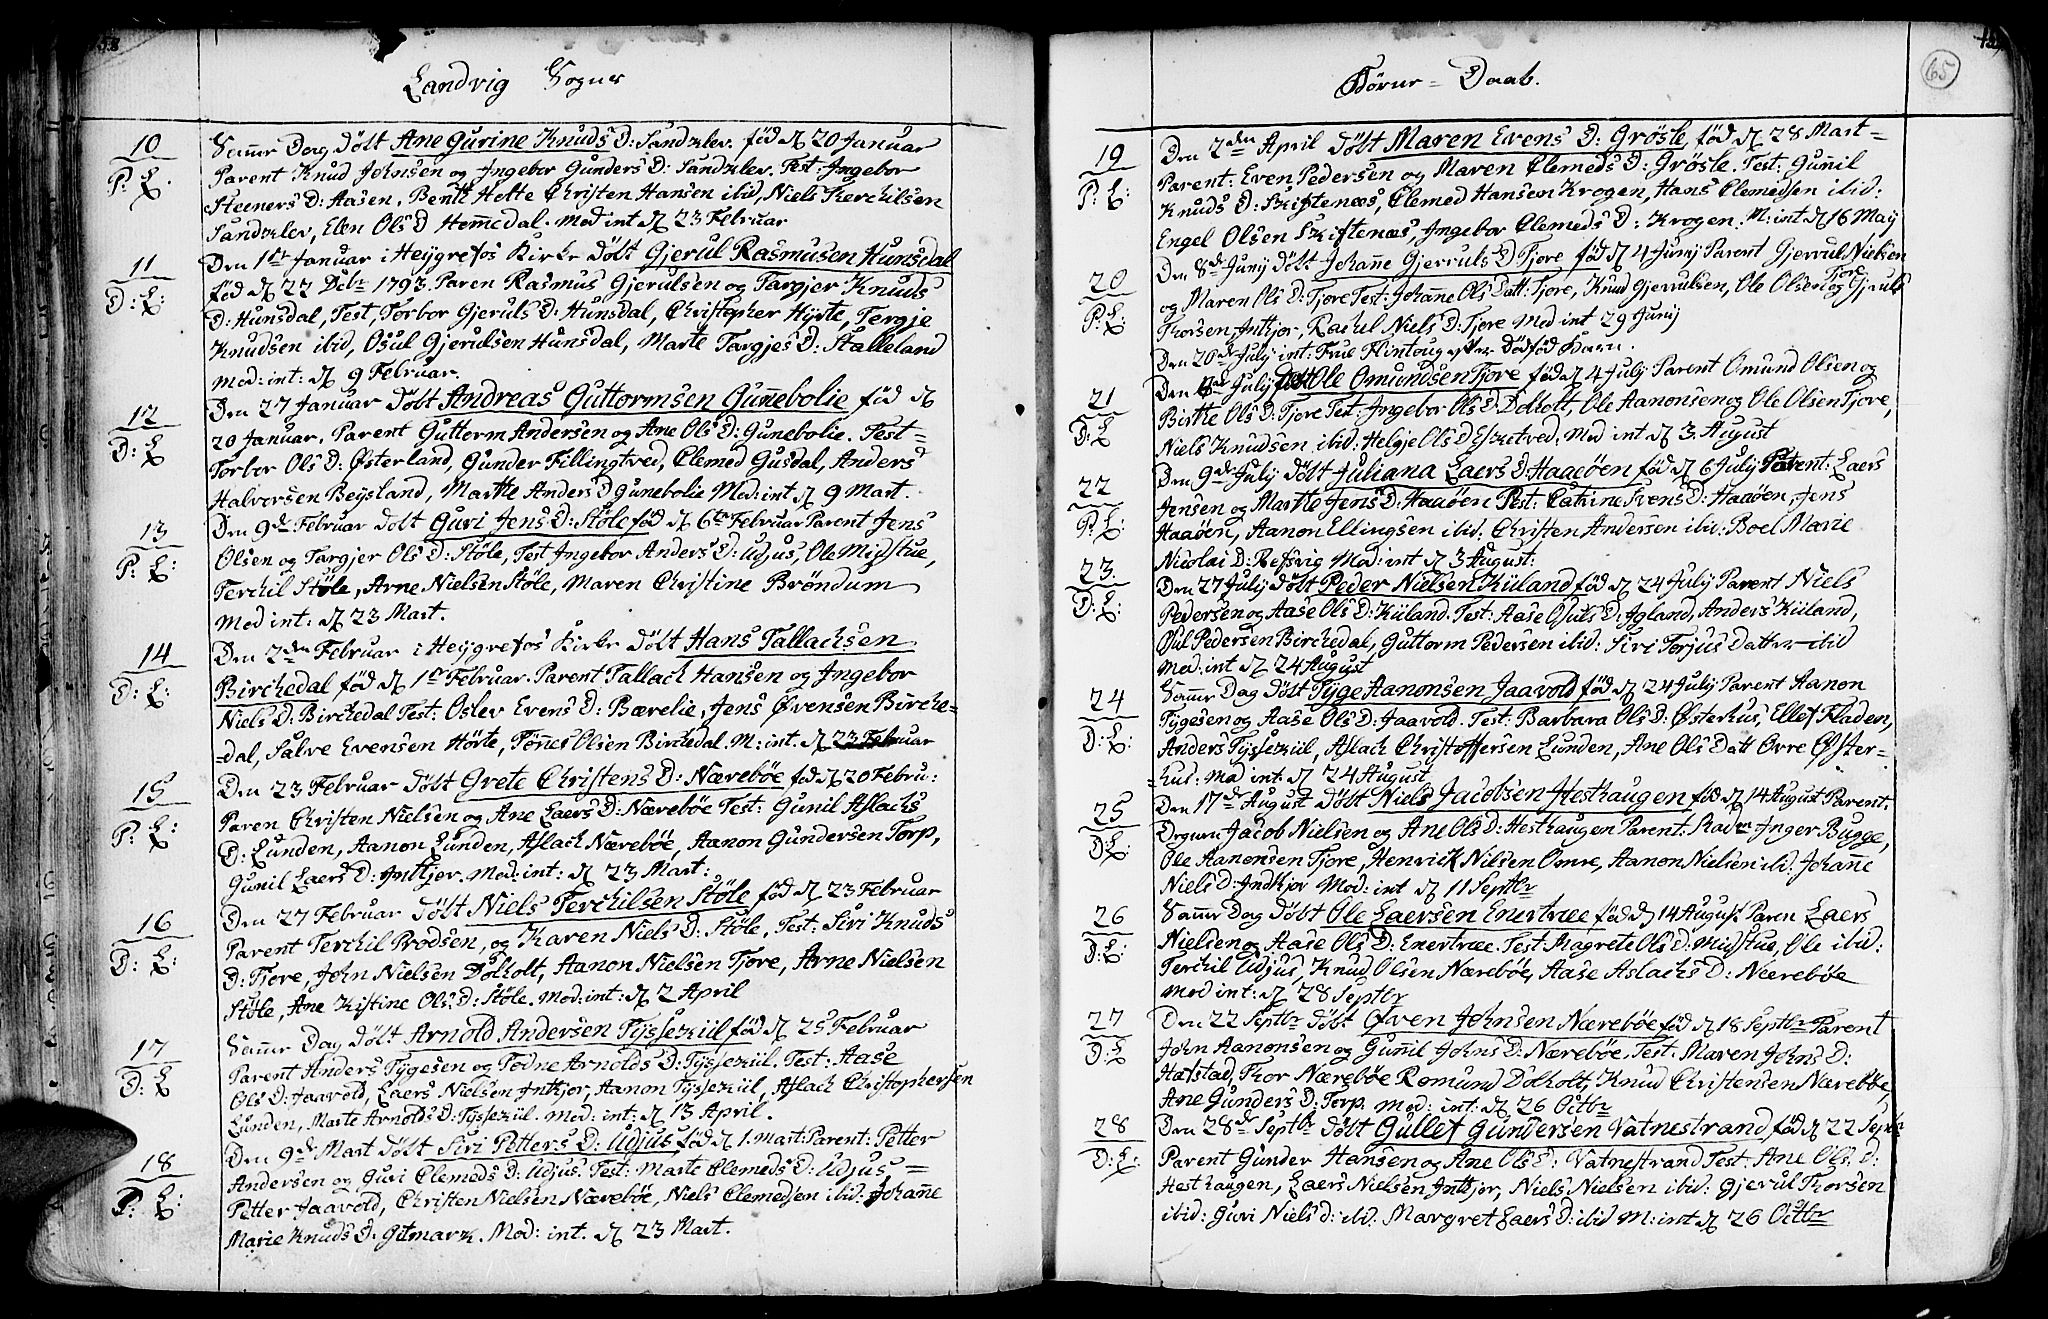 Landvig Sogns
10
P: L:
Samme Dag døbt Ane Gurine Knuds D: Sandklev. fød d 20 Januar
Parent Knud Johnsen og Ingebor Gunders D: Sandklev. Test: Ingebor
Steeners D: Aasen, Bentt Hette Christen Hansen ibid, Niels Kerchilsen
Sandklev, Elen Ols D Hemmedal. Mod int d 23 Februar
11
D: L:
Den 1ste Januar i Heygrefos Kirke døbt Gjerul Rasmusen Hunsdal
fød d 22 Debr 1793. Paren Rasmus Gjerulsen og Targjer Knuds
D: Hunsdal, Test, Torbor Gjeruls D: Hunsdal, Christopher Hyrte, Tergje
Knudsen ibid, Osul Gjerulsen Hunsdal, Marte Targjes D: Stalleland
Mod: int: d 9 Februar.
12
D: L
Den 27 Januar døbt Andreas Guttormsen Gunnebolie fød d
20 Januar. Parent Guttorm Andersen og Ane Ols D: Gunebolie. Test=
Torbor Ols D: Østerland, Gunder Fillingtved, Clemed Gusdal, Anders
Halversen Beysland, Marthe Anders D Gunebolie Mod: int d 9 Mart.
13
P: L:
Den 9de Februar døbt Guri Jens D: Støle fød d 6te Februar Parent Jens
Olsen og Targjer Ols D: Støle, Test Ingebor Anders D: Udjus, Ole Midstue,
Terchil Støle, Arne Nielsen Støle, Maren Christine Brøndum
Mod int: d 23 Mart.
14
D: L:
Den 2den Februar i Heygrefos Kirke døbt Hans Tallachsen
Birchedal fød d 1ste Februar. Parent Tallach Hansen og Ingebor
Niels D: Birchedal Test: Oslev Evens D: Bærelie, Jens Øvensen Birche=
=dal, Salve Evensen Hørte, Tønnes Olsen Birchedal. M: int. d 23 Februar
15
P: L:
Den 23 Februar døbt Grete Christens D: Nærebøe fød d 20 Febru:
Paren Christen Nielsen og Ane Laers D: Nærebøe Test: Gunil Aslachs
D: Lunden, Aanon Lunden, Aslach Nærebøe, Aanon Gundersen Torp,
Gunil Laers D: Intkjer. Mod: int: d 23 Mart:
16
D: L:
Den 27 Februar døbt Niels Terchilsen Støle fød d 23 Februar
Parent Terchil Brodsen, og Karen Niels D: Støle, Test: Siri Knuds
D: Tjore, John Nielsen Dolholt, Aanon Nielsen Tjore, Arne Nielsen
Støle, Ane Kistine Ols D: Støle. Mod: int: d 2 April
17
D: L
Samme Dag døbt Arnold Andersen Tyssekiil fød d 25 Februar
Parent Anders Tygesen og Todne Arnolds D: Tyssekiil. Test: Aase
Ols D: Jaavold, Laers Nielsen Intkjor, Aanon Tyssekiil, Aslach Christophersen
Lunden, Marte Arnolds D: Tyssekiil. Mod: int: d 13 April.
18
P: L:
Den 9de Mart døbt Siri Petters D: Udjus, fød d 1. Mart: Parent: Petter
Andersen og Guri Clemeds D: Udjus. Test: Marte Clemeds D: Udjus=
Petter Jaavold, Christen Nielsen Nærebøe, Niels Clemedsen ibid: Johanne
Marie Knuds D: Gitmark. Mod: int. d 23 Mart.
65
Børne=Daab.
19
P: L:
Den 2den April døbt Maren Evens D: Grøsle, fød d 28 Mart=
Parent: Even Pedersen og Maren Clemeds D: Grøsle. Test: Gunil
Knuds D: Skiftenæs, Clemed Hansen Krogen, Hans Clemedsen ibid:
Engel Olsen Skiftenæs, Ingebor Clemeds D: Krogen. M: int d 16 May
20
P: L
Den 8de Junij døbt Johanne Gjeruls D Tjore fød d 4 Junij Parent Gjerrul Nielsen
og Maren Ols D: Tjore Test: Johanne Ols Datt: Tjore, Knud Gjerrulsen, Ole Olsen Tjore og Gjerul
Thorsen Intkjor, Rachel Niels D: Tjore Mod int 29 Junij
Den 20de July int: Frue Flintoug efter Dødfød Barn.
21
D: L
Den July døbt Ole Omundsen Tjore fød d 4 July Parent Omund Olsen og
Birthe Ols D: Tjore Test: Ingebor Ols D: Dolholt, Ole Aanonsen og Ole Olsen Tjore,
Niels Knudsen ibid: Helgje Ols D Esketved. Mod int d 3. August
22
P: L:
Den 9de July døbt Juliana Laers D: Haaeøen fød d 6 July Parent: Laers
Jensen og Marthe Jens D: Haaøen Test: Catrine Svens D: Haaøen, Jens
Haaøen, Aanon Ellingsen ibid: Christen Andersen ibid: Boel Marie
Nicolai D: Refsvig Mod: int d 3 August:
23
D: L:
Den 27 July døbt Peder Nielsen Kiiland fød d 24 July Parent Niels
Pedersen og Aase Ols D: Kiiland. Test: Aase Osuls D: Igland, Anders Kiiland,
Osul Pedersen Birchedal, Guttorm Pedersen ibid: Siri Torjus Datter ibid
Mod: int d 24 August
24
D: L:
Samme Dag døbt Tyge Aanonsen Jaavold fød d 24 July Parent Aanon
Tygesen og Aase Ols D: Jaavold. Test: Barbara Ols D: Østerhus, Ellef Fladen,
Anders Tyssekiil, Aslach Christoffersen Lunden, Ane Ols Datt Ovre Øster=
=hus: Mod int: d 24 August
25
D: L:
Den 17de August døbt Niels Jacobsen Hesthaugen fød d 14 August Parent.
Drgun Jacob Nielsen og Ane Ols D: Hesthaugen Parent: Madm Inger Bugge,
Ole Aanonsen Tjore, Henrick Nilsen Omre, Aanon Nielsen ibid: Johanne
Niels D: Indkjor Mod: int d 11 Septbr
26
D: L:
Samme Dag døbt Ole Laersen Enertræe fød d 14 August Paren Laers
Nielsen og Aase Ols D: Enertræe. Test: Magrete Ols D: Midstue, Ole ibid:
Terchil Udjus, Knud Olsen Nærebøe, Aase Aslachs D: Nærebøe
Mod int: d 28 Septbr
27
D: L
Den 22 Septbr døbt Øven Johnsen Nærebøe fød d 18 Septbr Parent
John Aanonsen og Gunnil Johns D: Nærebøe. Test. Maren Johns D:
Hafstad, Thor Nærebøe Romund Dolholt, Knud Christensen Nærebøe,
Ane Gunders D: Torp. Mod: int: d 26 Octbr
28
D: L:
Den 28de Septbr døbt Gullef Gundersen Vatnestrand fød d 22 Septbr
Parent Gunder Hansen og Ane Ols D: Vatnestrand Test: Ane Ols D:
Hesthaugen, Laers Nielsen Intkjor, Niels Nielsen ibid: Gjerul Thorsen
ibid: Guri Niels D: ibid. Margret Laers D: ibid M: int d 26 Octbr